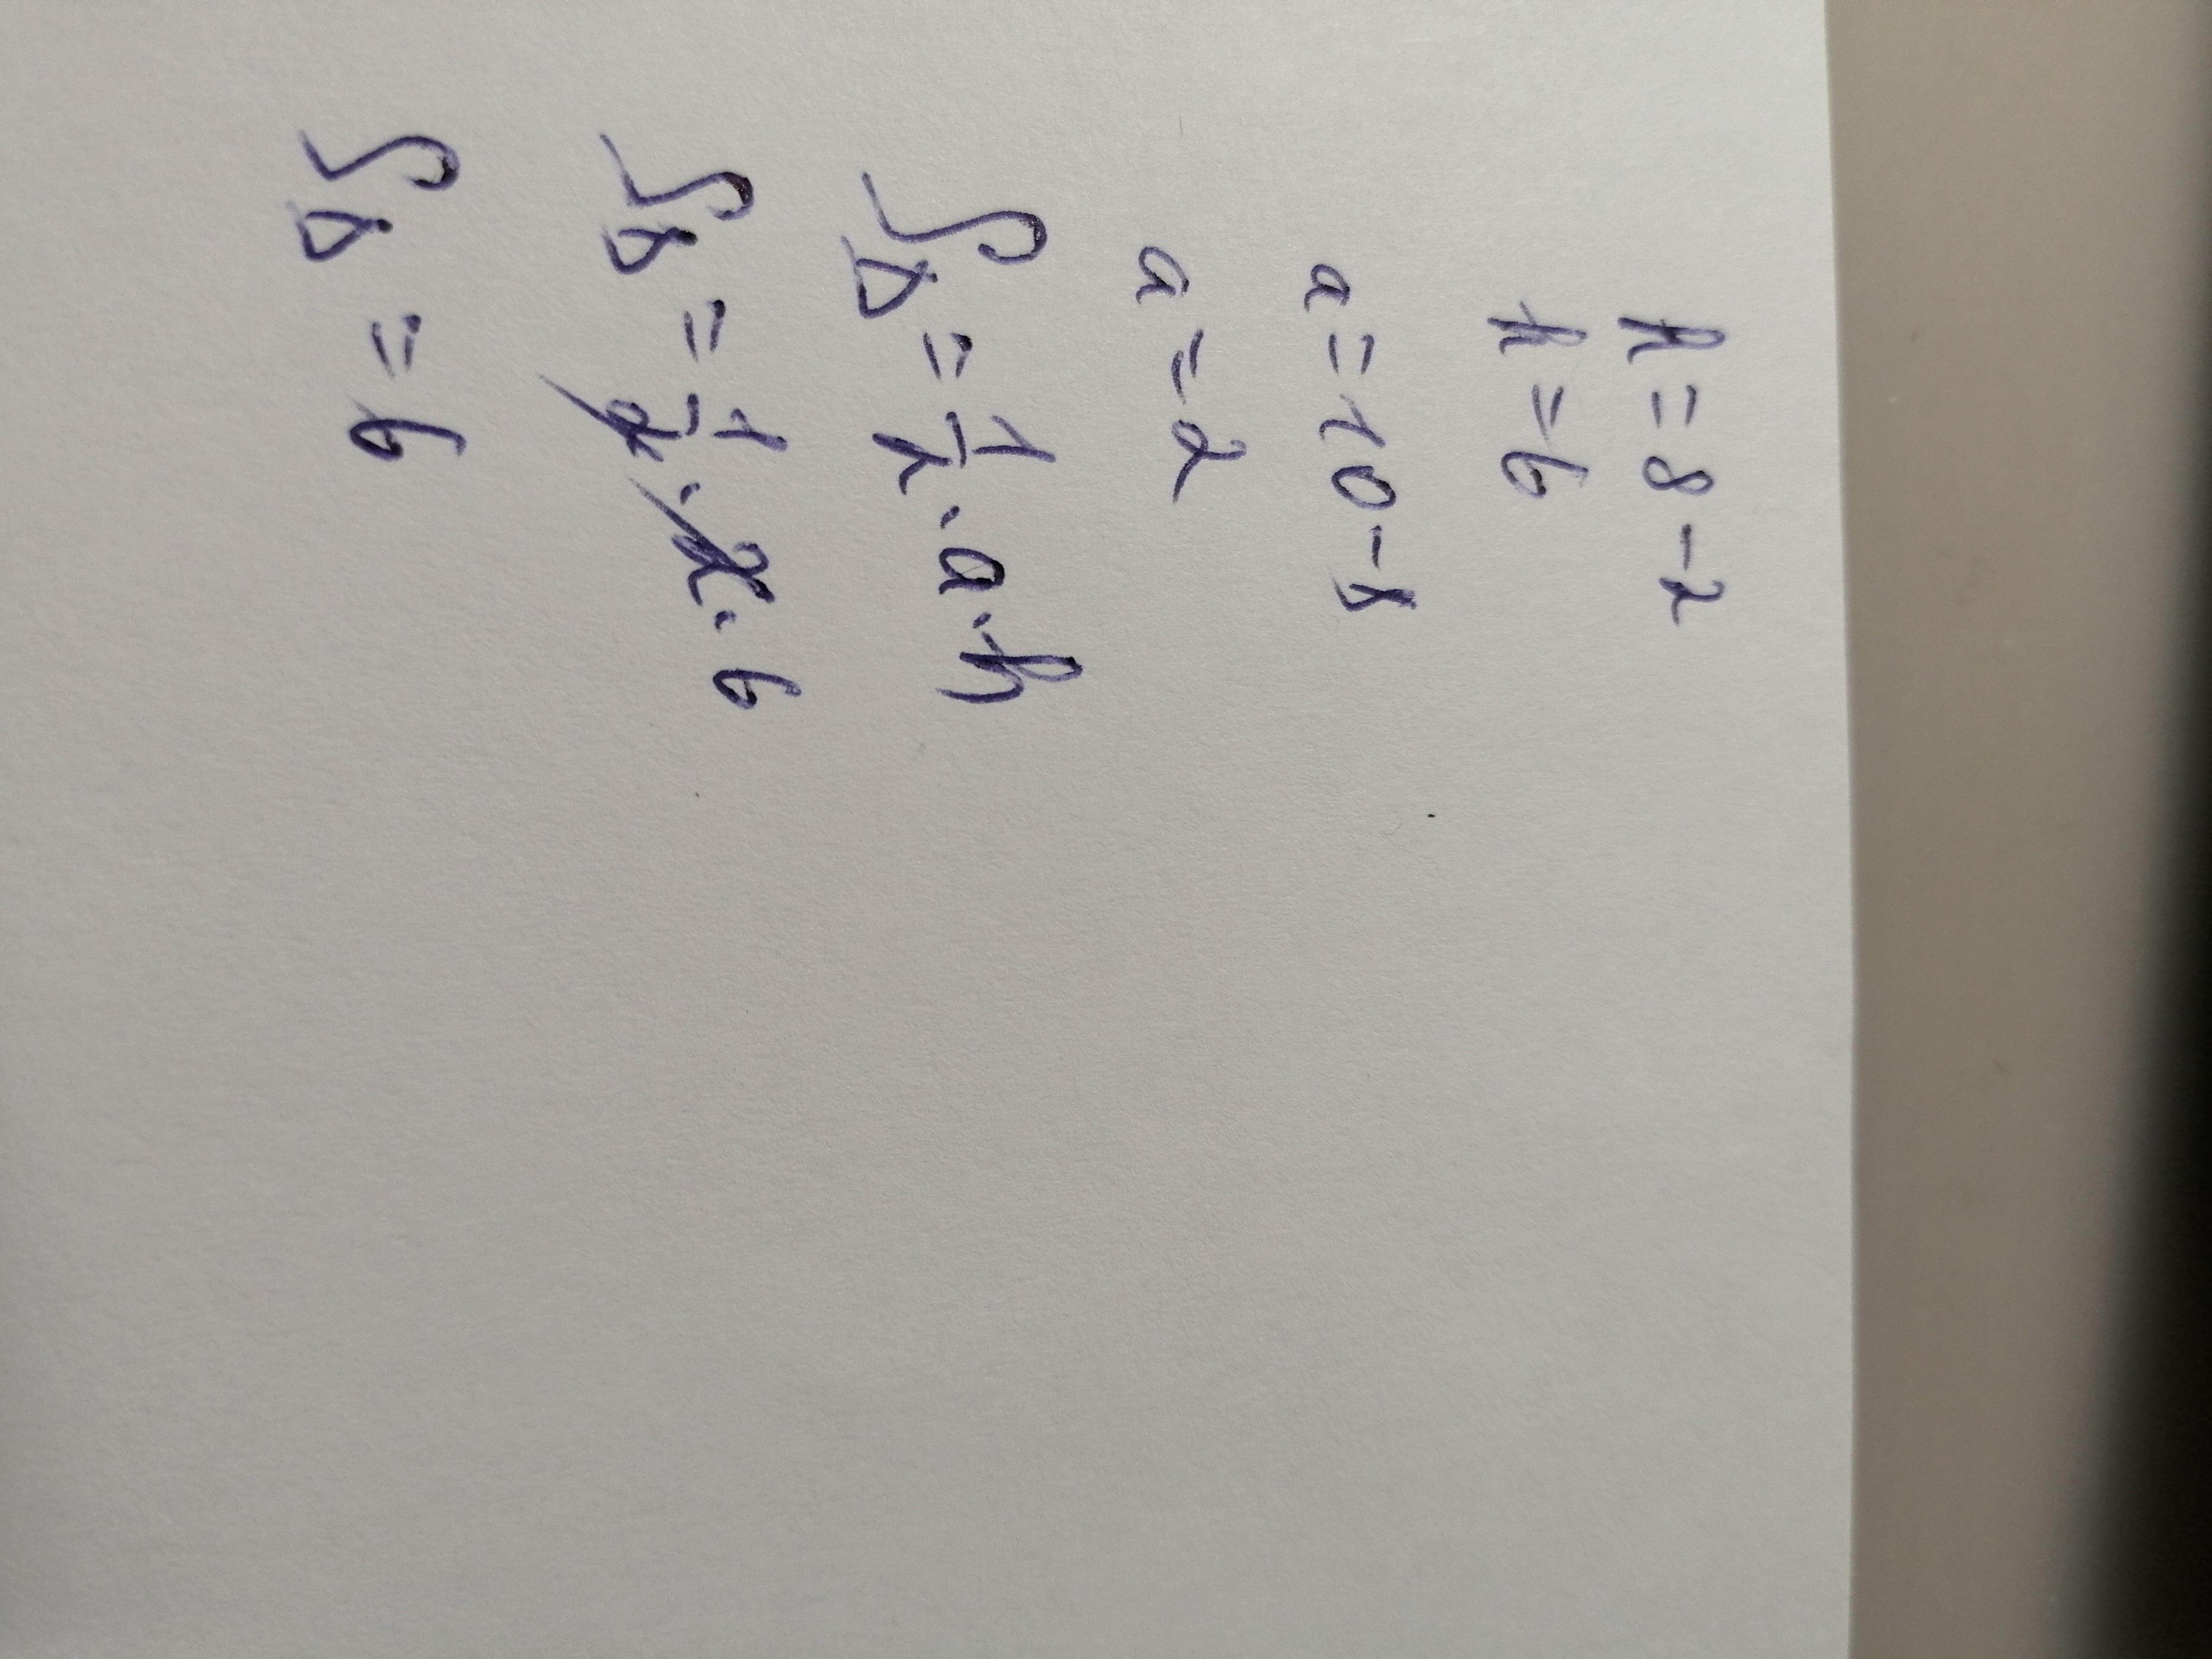 h = 8 - 2
h = 6
a = 10 - 8
a = 2
S△ = 1/2 · a · h
S△ = 1/2 · 2 · 6
S△ = 6